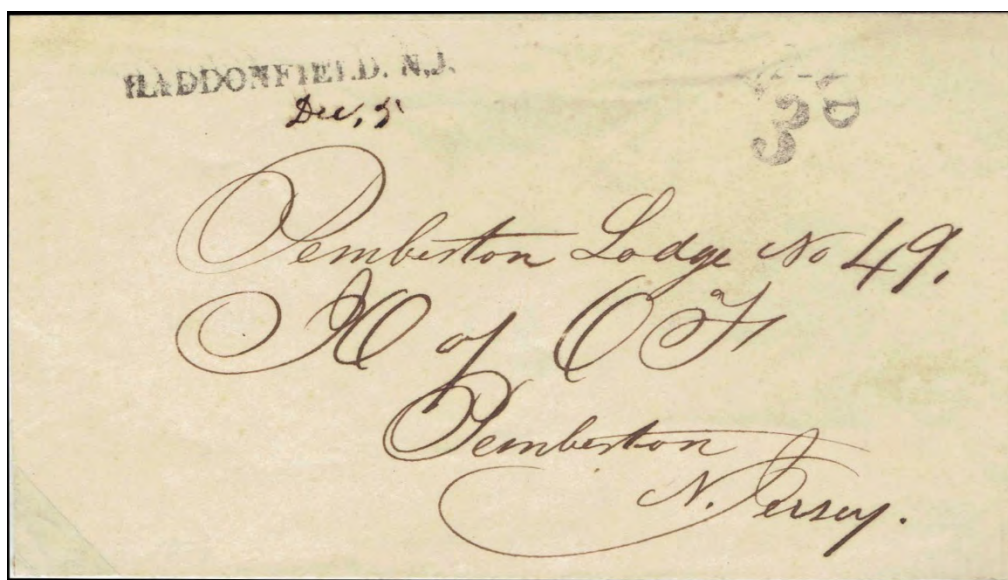 HADDONFIELD. N.J.
Dec, 5
3
Pemberton Lodge No 49.
IO of OF
Pemberton
N. Jersey.